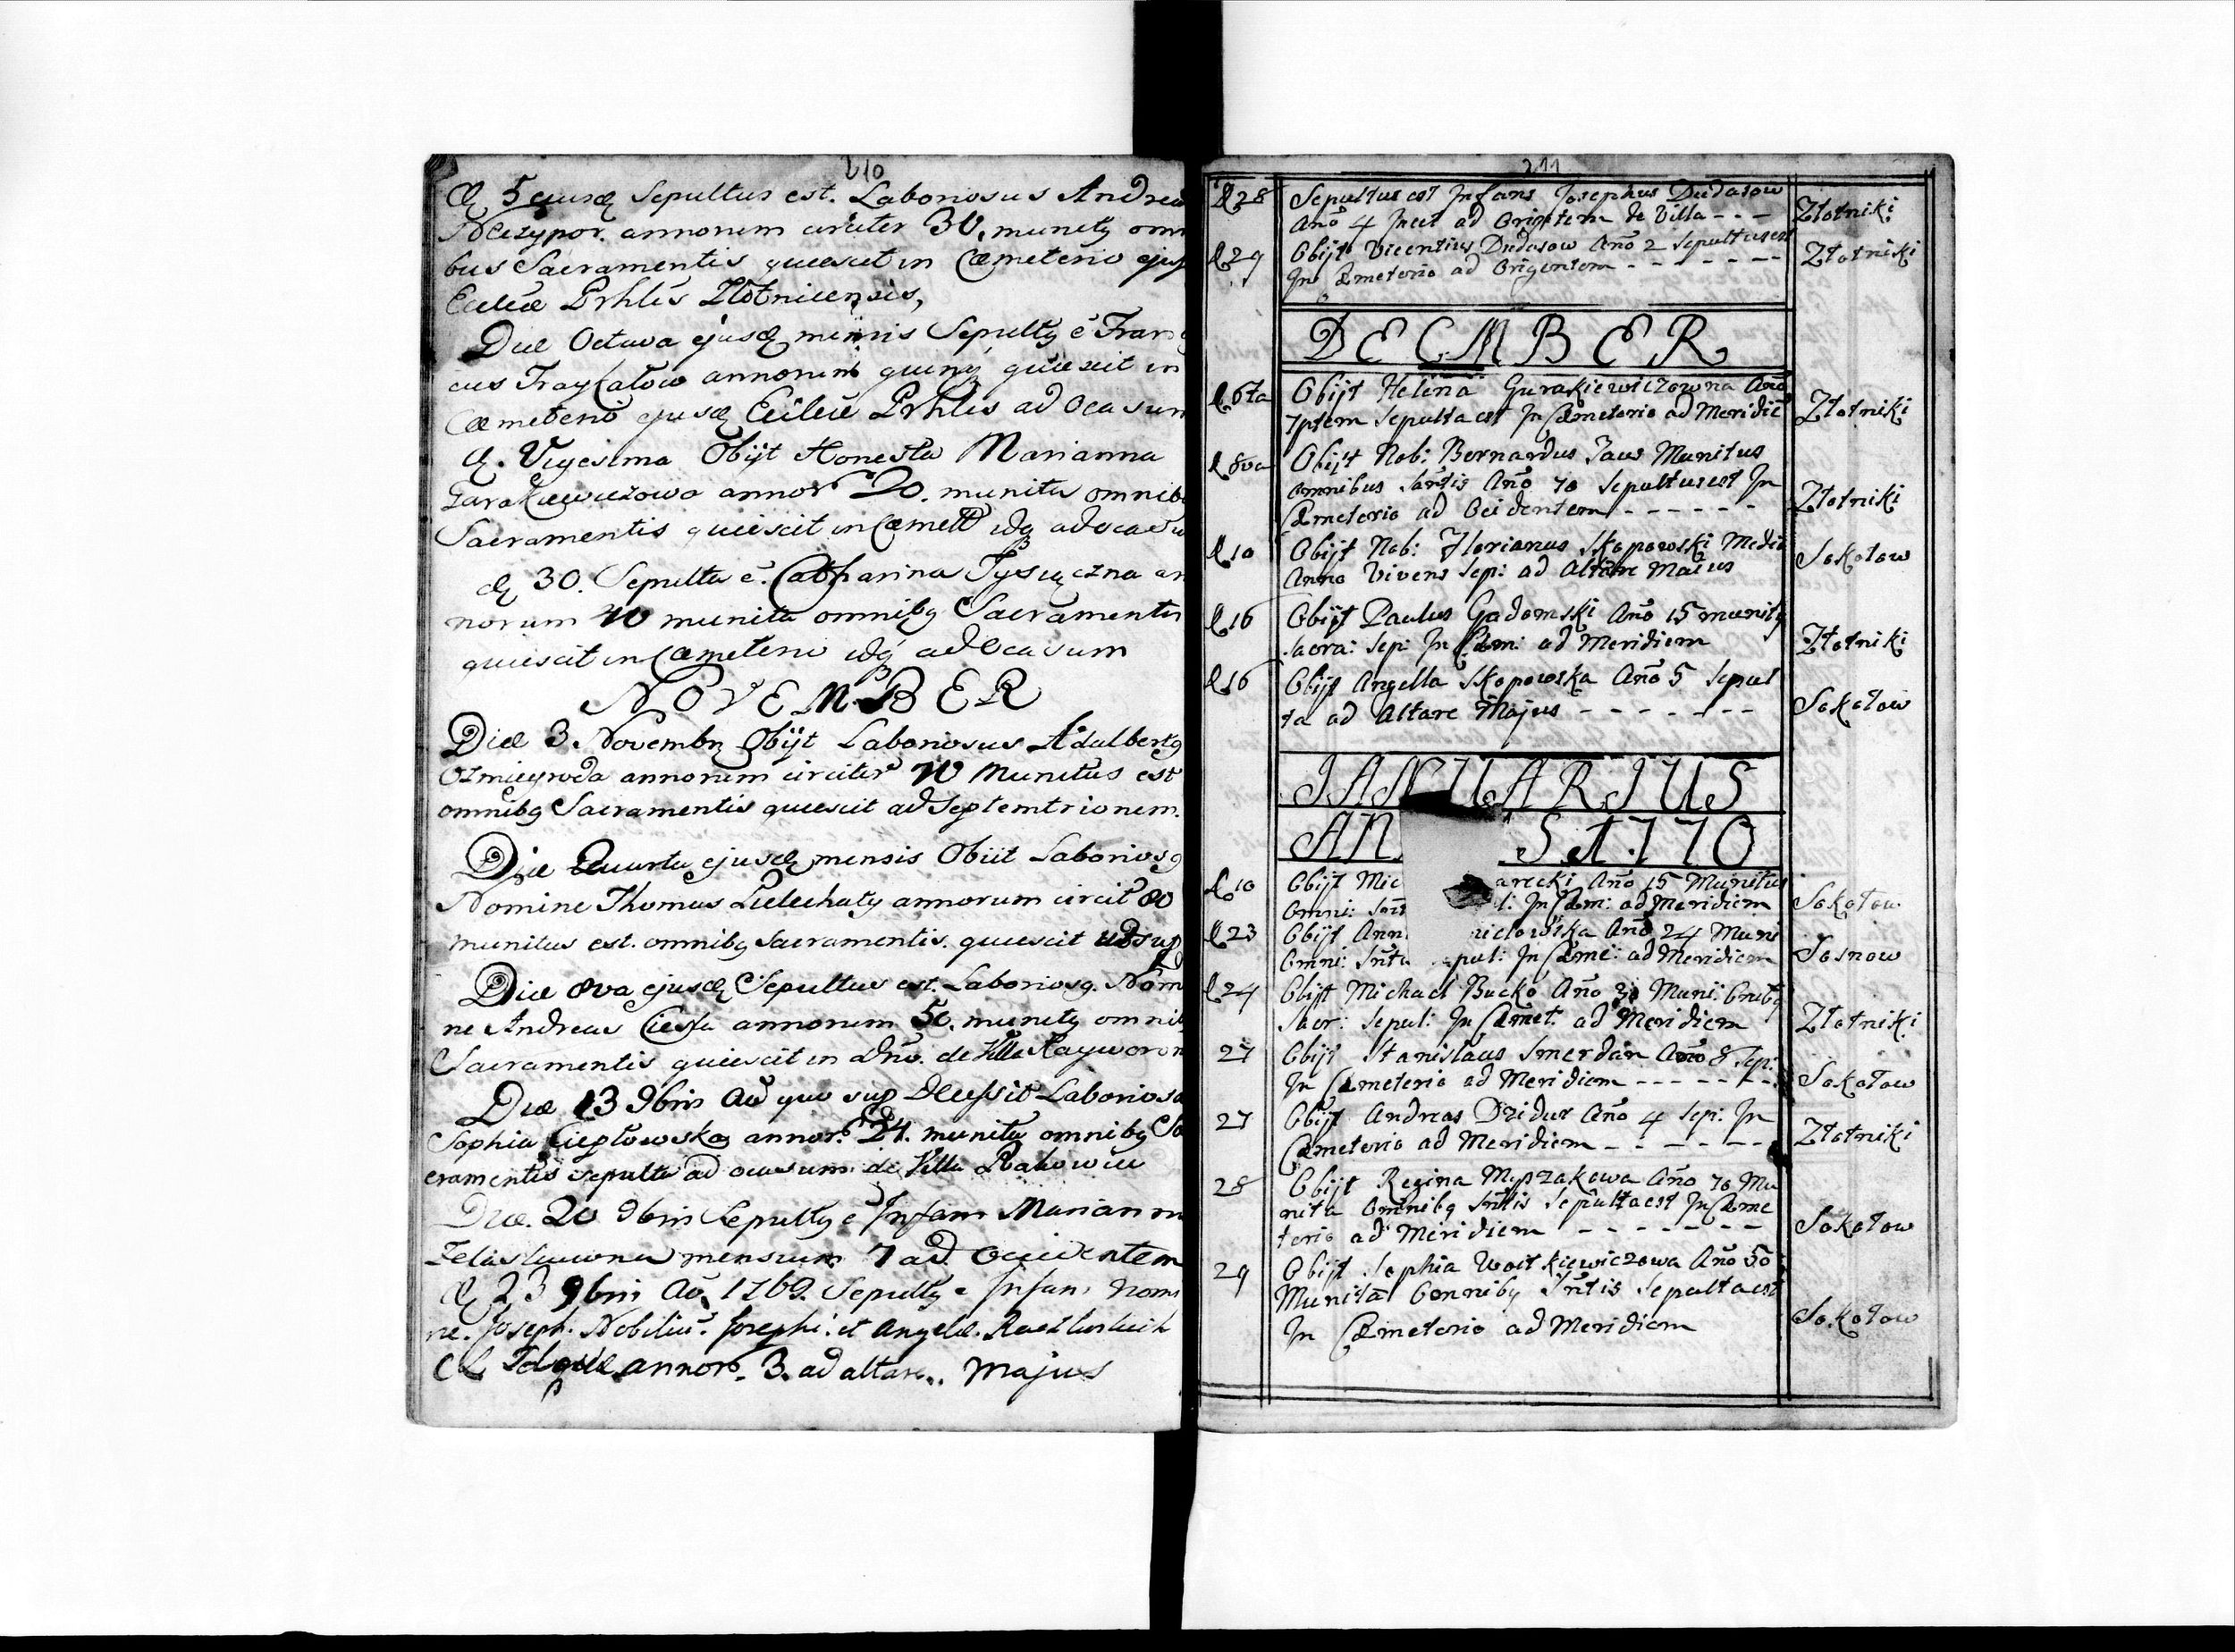 210
5 ejusd Sepultus est. Laboriosus Andrea
annorum circiter 30. munitq omni
bus Sacramentis quiescit in Cæmeterio ejus
Eccleæ Prhlis Złotnicensis,
Die Octava ejusd mensis Sepultq ẽ Fran
cus Traykatow annorum quinq quiescit in
Cæmeterio ejusd Eccleæ Prhlis ad Ocasum
d. Vigesima Obijt Honesta Marianna
Garakiewiczowa annor 20. munita omnib
Sacramentis quiescit in Cæmet idq ad ocasu
d 30. Sepulta ẽ. Catharina Tysiączna an
norum 40 munita omnibq Sacramentis
quiescit in Cæmeterio idq ad Ocasum
NOVEMBER
Die 3. Novembr Obijt Laboriosus Adalbertq
annorum circiter 70 Munitus est
omnibq Sacramentis quiescit ad Septemtrionem.
Die Quarta ejusd mensis Obiit Laboriosq
Nomine Thomas Lelechaty annorum circit 80
munitus est. omnibq Sacramentis. quiescit ut sup
Die 8va ejusd Sepultus est. Laboriosq. Nom
ne Andreas Ciesla annorum 50. munitq omnib
Sacramentis quiescit in Dno. de Villa
Die 13 9bris Aō quo sup Decessit Laboriosa
Sophia Ciepłowska annor. 24. munita omnibq Sa
cramentis sepulta ad ocasum de Villa Rakowice
Die. 20 9bris Sepultq ẽ Infans Mariann
mensium 7 ad Occidentem
d 23 9bris Aō 1769. Sepultq ẽ Infans Nomi
ne. Joseph. Nobiliũ. Josephi. et Angelæ.
annor. 3. ad altare. Majus
211
d 28 Sepultus est Infans Josephus Dudasow
Ano 4 Jacet ad Origntem de Villa - - - Złotniki
d 29 Obijt Vicentius Dudasow Ano 2 Sepultus est
In Cæmeterio ad Origentem - - - - - - - Złotniki
DECMBER
d 6ta Obijt Helena Gurakiewiczowna Ano
7ptem Sepulta est In Cæmeterio ad Meridiẽ Złotniki
d 8va Obijt Nob: Bernardus Jaws Munitus
omnibus Santis Ano 70 Sepultus est In
Cæmeterio ad Occidentem - - - - - - Złotniki
d 10 Obijt Nob: Florianus Skopowski Medio
Anno Vivens Sep: ad Altare Maius Sokołow
d 16 Obijt Paulus Gadomski Ano 15 munitq
Sacra: Sep: In Cæm: ad Meridiem Złotniki
d 16 Obijt Angella Skopowska Ano 5 Sepul
ta ad Altare Majus - - - - - - - Sokołow
JANUARIUS
AN S 1.770
d 10 Obijt Mic arecki Ano 15 Munitus
Omni: l: In Cæm: ad Meridiem Sokołow
d 23 Obijt Ann Ano 24 Muni
Omni: Snta pul: In Cæme: ad Meridiem Sosnow
d 24 Obijt Michael Bucko Ano 30 Muni: Omibq
Sacr: Sepul: In Cæmet: ad Meridiem Złotniki
27 Obijt Stanislaus Smerdan Ano 8 Sep:
In Cæmeterio ad Meridiem - - - - - - Sokołow
27 Obijt Andreas Dzidur Ano 4 Sep: In
Cæmeterio ad Meridiem - - - - - - Złotniki
28 Obijt Regina Ano 70 Mu
nita Omnibq Sntis Sepulta est In Cæme
terio ad Meridiem - - - - - - - Sokołow
29 Obijt Sophia Woitkiewiczowa Ano 50
Munita Omnibq Sntis Sepulta est
In Cæmeterio ad Meridiem Sokołow